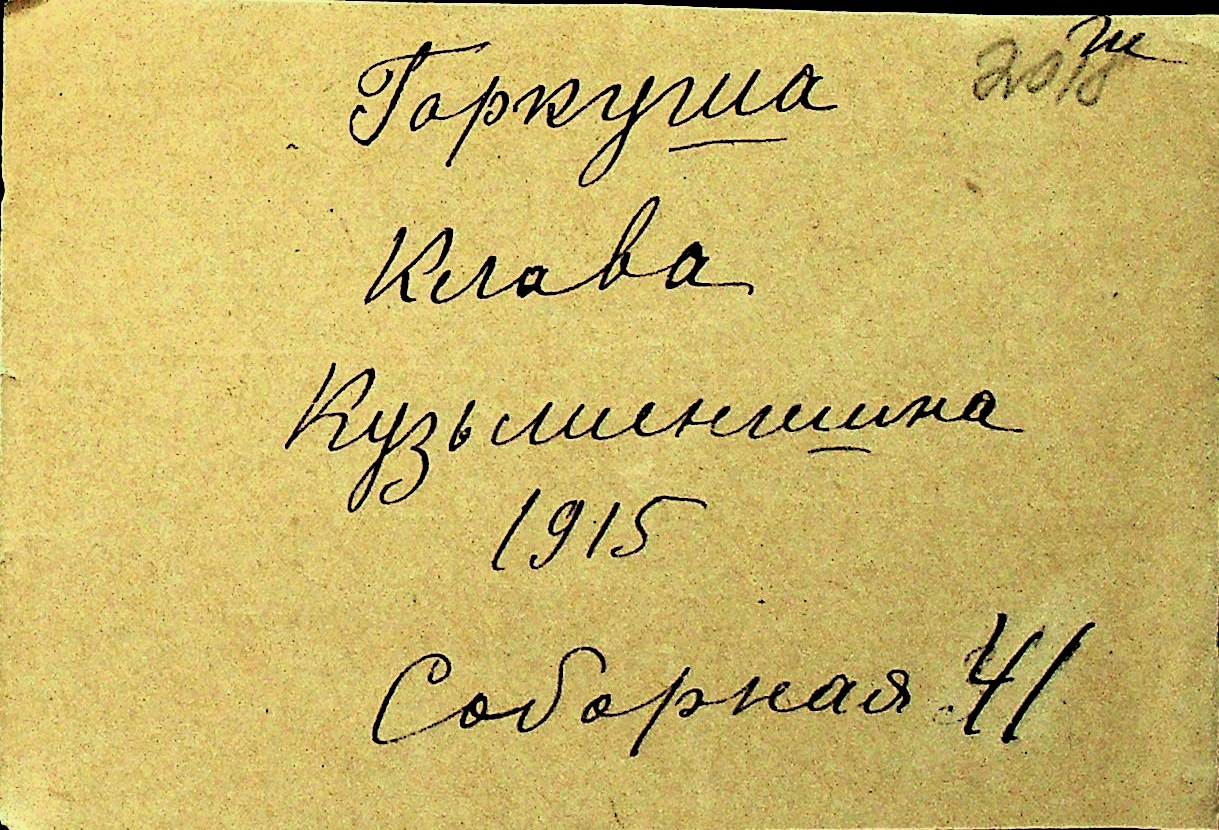 2018
Гаркуша
Клава
Кузьменишна
1915
Соборная 41